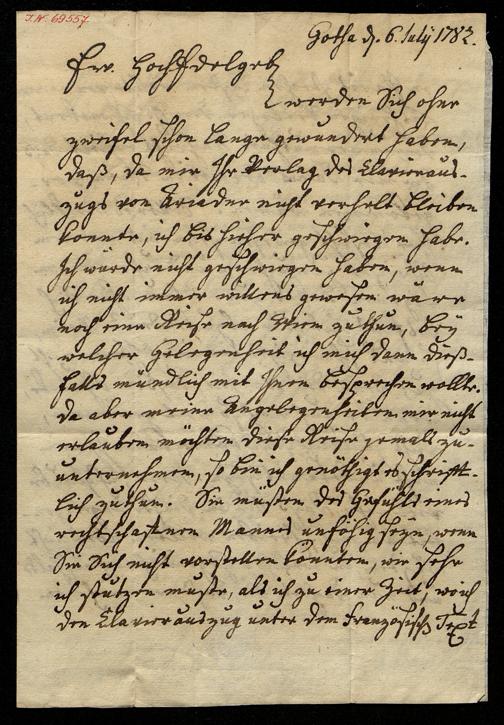 I. N. 69557
Gotha d. 6. July 1782.
Ew. Hochedelgeb.
werden Sich ohne
zweifel schon lange gewundert haben,
daß, da mir Ihr Verlag des Clavieraus-
zugs von Ariadne nicht verhelt bleiben
konnte, ich bis hieher geschwiegen habe.
Ich würde nicht geschwiegen haben, wenn
ich nicht immer willens gewesen wäre
noch eine Reise nach Wien zuthun, bey
welcher Gelegenheit ich mich dann dieß-
falls mündlich mit Ihnen besprechen wollte.
da aber meine Angelegenheiten mir nicht
erlauben möchten diese Reise jemals zu-
unternehmen, so bin ich genöthigt es schrifft-
lich zuthun. Sie müsten des Gefühls eines
rechtschaffnen Mannes unfähig seyn, wenn
Sie Sich nicht vorstellen könnten, wie sehr
ich stutzen muste, als ich zu einer Zeit, wo ich
den Clavierauszug unter dem Französisch Text